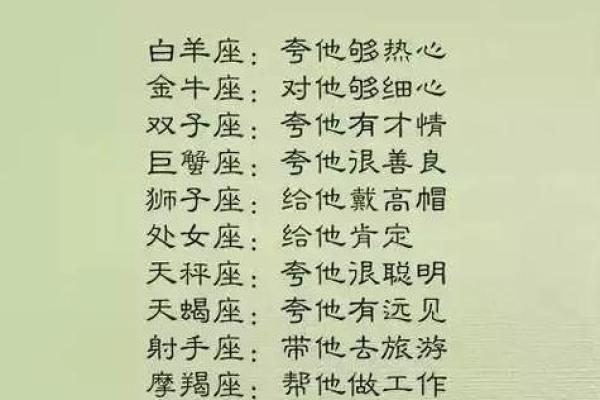 白羊座：夸他够热心
金牛座：对他够细心
双子座：夸他有才情
巨蟹座：夸他很善良
狮子座：给他戴高帽
处女座：给他肯定
天秤座：夸他很聪明
天蝎座：夸他有远见
射手座：带他去旅游
摩羯座：帮他做工作